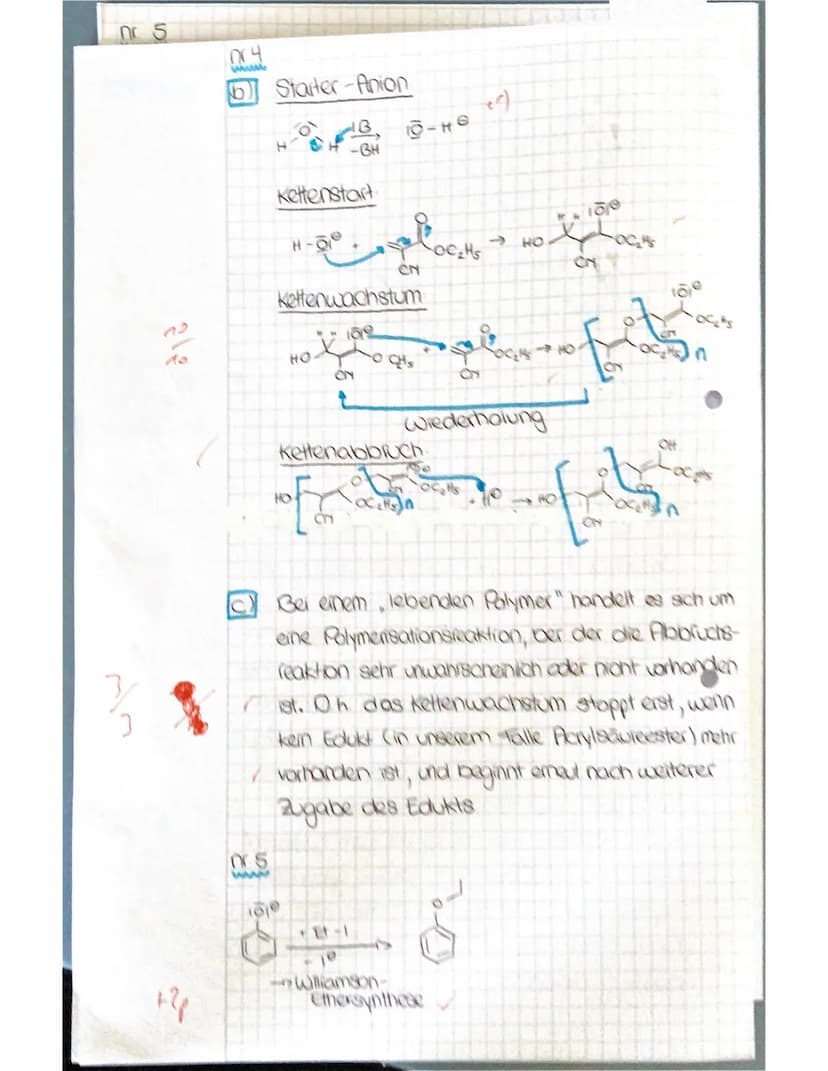 nr 5
nr 4
b) Starter-Anion
H O H |B, -BH |O̅-H⊖
Kettenstart
H-O̅|⊖ + CN O OC₂H₅ → HO H H |O̅|⊖ CN OC₂H₅
Kettenwachstum
10/10
HO H H |O̅|⊖ CN + CN O OC₂H₅ → HO CN O OC₂H₅ CN |O̅|⊖ OC₂H₅ n
Wiederholung
Kettenabbruch
HO CN O OC₂H₅ n CN OC₂H₅ + H⊕ → HO CN O OC₂H₅ n CN OH OC₂H₅
c) Bei einem „lebenden Polymer" handelt es sich um
eine Polymerisationsreaktion, bei der die Abbruchs-
reaktion sehr unwahrscheinlich oder nicht vorhanden
3/3
ist. D.h. das Kettenwachstum stoppt erst, wenn
kein Edukt (in unserem Falle Acrylsäureester) mehr
vorhanden ist, und beginnt erneut nach weiterer
Zugabe des Edukts.
nr 5
|O̅|⊖ + Et-I - I⊖ O
→ Williamson-
Ethersynthese
+2p